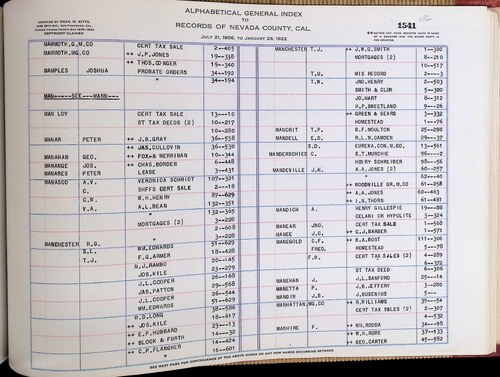 ALPHABETICAL GENERAL INDEX
TO
RECORDS OF NEVADA COUNTY, CAL.
JULY 21, 1856, TO JANUARY 25, 1922
1541
COPYRIGHT CLAIMED
MAMMOTH.G.M.CO CERT TAX SALE 2--405
MAMMOTH.MG.CO ++ J.P.JONES 19--338
++ THOS.CONGER 19--340
MAMPLES JOSHUA PROBATE ORDERS 34--192
" 34--194
MAN-----SEE ----MANN---
MAN LOY CERT TAX SALE 13---10
ST TAX DEEDS (2) 10--217
10--280
MANAR PETER ++ J.B.GRAY 36--538
++ JAS.CULLOVIN 36--538
MANAHAN GEO. ++ FOX & MERRIMAN 10--344
MANANGE JOS. ++ CHAS.BORDEN 6--448
MANARES PETER LEASE 3--431
MANASCO A.V. VERONICA SCHMIDT 107--321
C. SHFFS CERT SALE 2---18
C.W. W.H.HENRY 87--629
V.A. A.L.BEAN 132--351
" 132--365
MORTGAGES (2) 3--228
2--608
3--228
MANCHESTER R.G. WM.EDWARDS 51--629
S.L. F.G.ARMER 20--428
T.J. N.J.RAMBO 20--145
JOS.KILE 23--279
J.L.COOPER 26--168
JAS.PATTON 29--568
J.L.COOPER 26--544
WM.EDWARDS 51--629
H.D.LONG 38--586
++ JOS.KILE 18--617
++ E.P.HUBBARD 23---13
++ BLOCK & FURTH 14---32
++ C.P.FLANGHER 14--424
16--601
MANCHESTER T.J. ++ J.W.G.SMITH 1--300
MORTGAGES (2) 8--210
10--517
T.U. MIS RECORD 2----3
T.W. JNO.HENRY 2--503
SMITH & CLOW 5--300
JO.HART 8--312
H.P.SWEETLAND 9--26
++ GREEN & SEARS 3--332
HOMESTEAD 1---76
MANCRIT T.P. B.F.MOULTON 25--298
MANDELL E.D. R.L.M.CAMDEN 29--37
S.D. EUREKA.CON.W.DO. 13--561
MANDERSCHIED C. S.T.MURCHIE 96---2
HENRY SCHREIBER 98--56
MANDEVILLE J.H. A.A.JONES (2) 60--257
" 62--40
++ WOODVILLE GR.M.CO 61--258
++ A.A.JONES 60--463
++ I.N.THORN 61--481
MANDICH A. HENRY GILLESPIE 19---88
CELARI OR HYPOLITE 3--324
MANEAR JNO. CERT TAX SALE 1--560
MANEE J.C. ++ C.J.BARBER 1--571
MANEGOLD C.F. ++ B.A.BOST 111--306
FRED. HOMESTEAD 5---78
F.H. CERT TAX SALES (2) 4--289
6--372
ST TAX DEED 6--306
MANEHAN J. J.L.SANFORD 25---14
MANETTA P. ++ J.B.JEFFERY 3--280
MANGIN J.B. J.BUSENIUS 5--
MANHATTAN.MG.CO ++ R.WILLIAMS 37---54
CERT TAX SALE (2) 2--307
4--532
MANHIRE F. ++ WM.RODDA 34---98
++ W.H.ROWE 37--133
++ GEO.CARTER 45--582
SEE NEXT PAGE FOR CONTINUANCE OF THE ABOVE NAMES OR ANY NEW NAMES OCCURRING BETWEEN